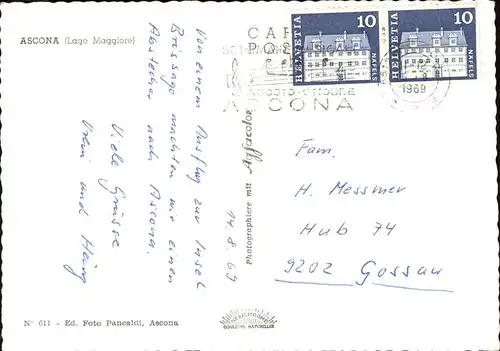 ASCONA (Lago Maggiore)
14.8.69
Von einem Ausflug zur Insel
Brissago machten wir einen
Abstecher nach Ascona.
Viele Grüsse
und Heinz
Photographiere mit Agfacolor
Nº 611 - Ed. Foto Pancaldi, Ascona
COULEURS NATURELLES
HELVETIA 10 NÄFELS
HELVETIA 10 NÄFELS
ASCONA
1969
Fam.
H. Messmer
Hub 74
9202 Gossau